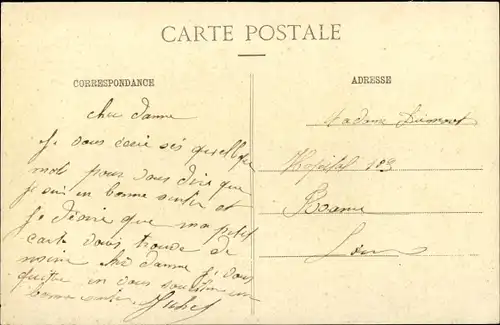 CARTE POSTALE
CORRESPONDANCE
ADRESSE
cher Dame
Je vous écrie ses quelque
mots pour vous dire que
je suis en bonne santer et
je désire que ma petit
carte vous trouve de
meme cher Dame je vous
quitte en vous souaitan un
bonne santer
Madme
Hopital 103